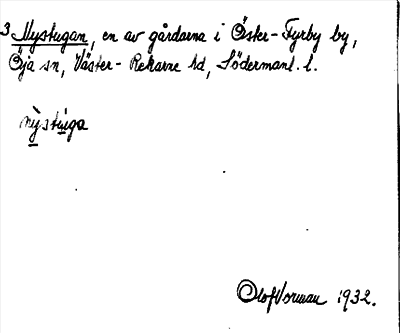 3 Nystugan, en av gårdarna i Öster-Fyrby by,
Öja sn, Väster-Rekarne hd, Södermanl. l.
nỳstu̱ga
Olof Norman 1932.